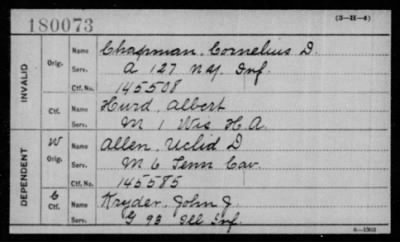 180073
(3-H-4)
INVALID
Orig.
Name Chapman, Cornelius D.
Serv. A 127 N.Y. Inf.
Ctf. No. 145508
Ctf.
Name Hurd, Albert
Serv. M 1 Wis. H.A.
DEPENDENT
W
Orig.
Name Allen, Uclid D
Serv. M 6 Tenn Cav.
Ctf. No. 145585
C
Ctf.
Name Kryder, John J.
Serv. G 93 Ill Inf.